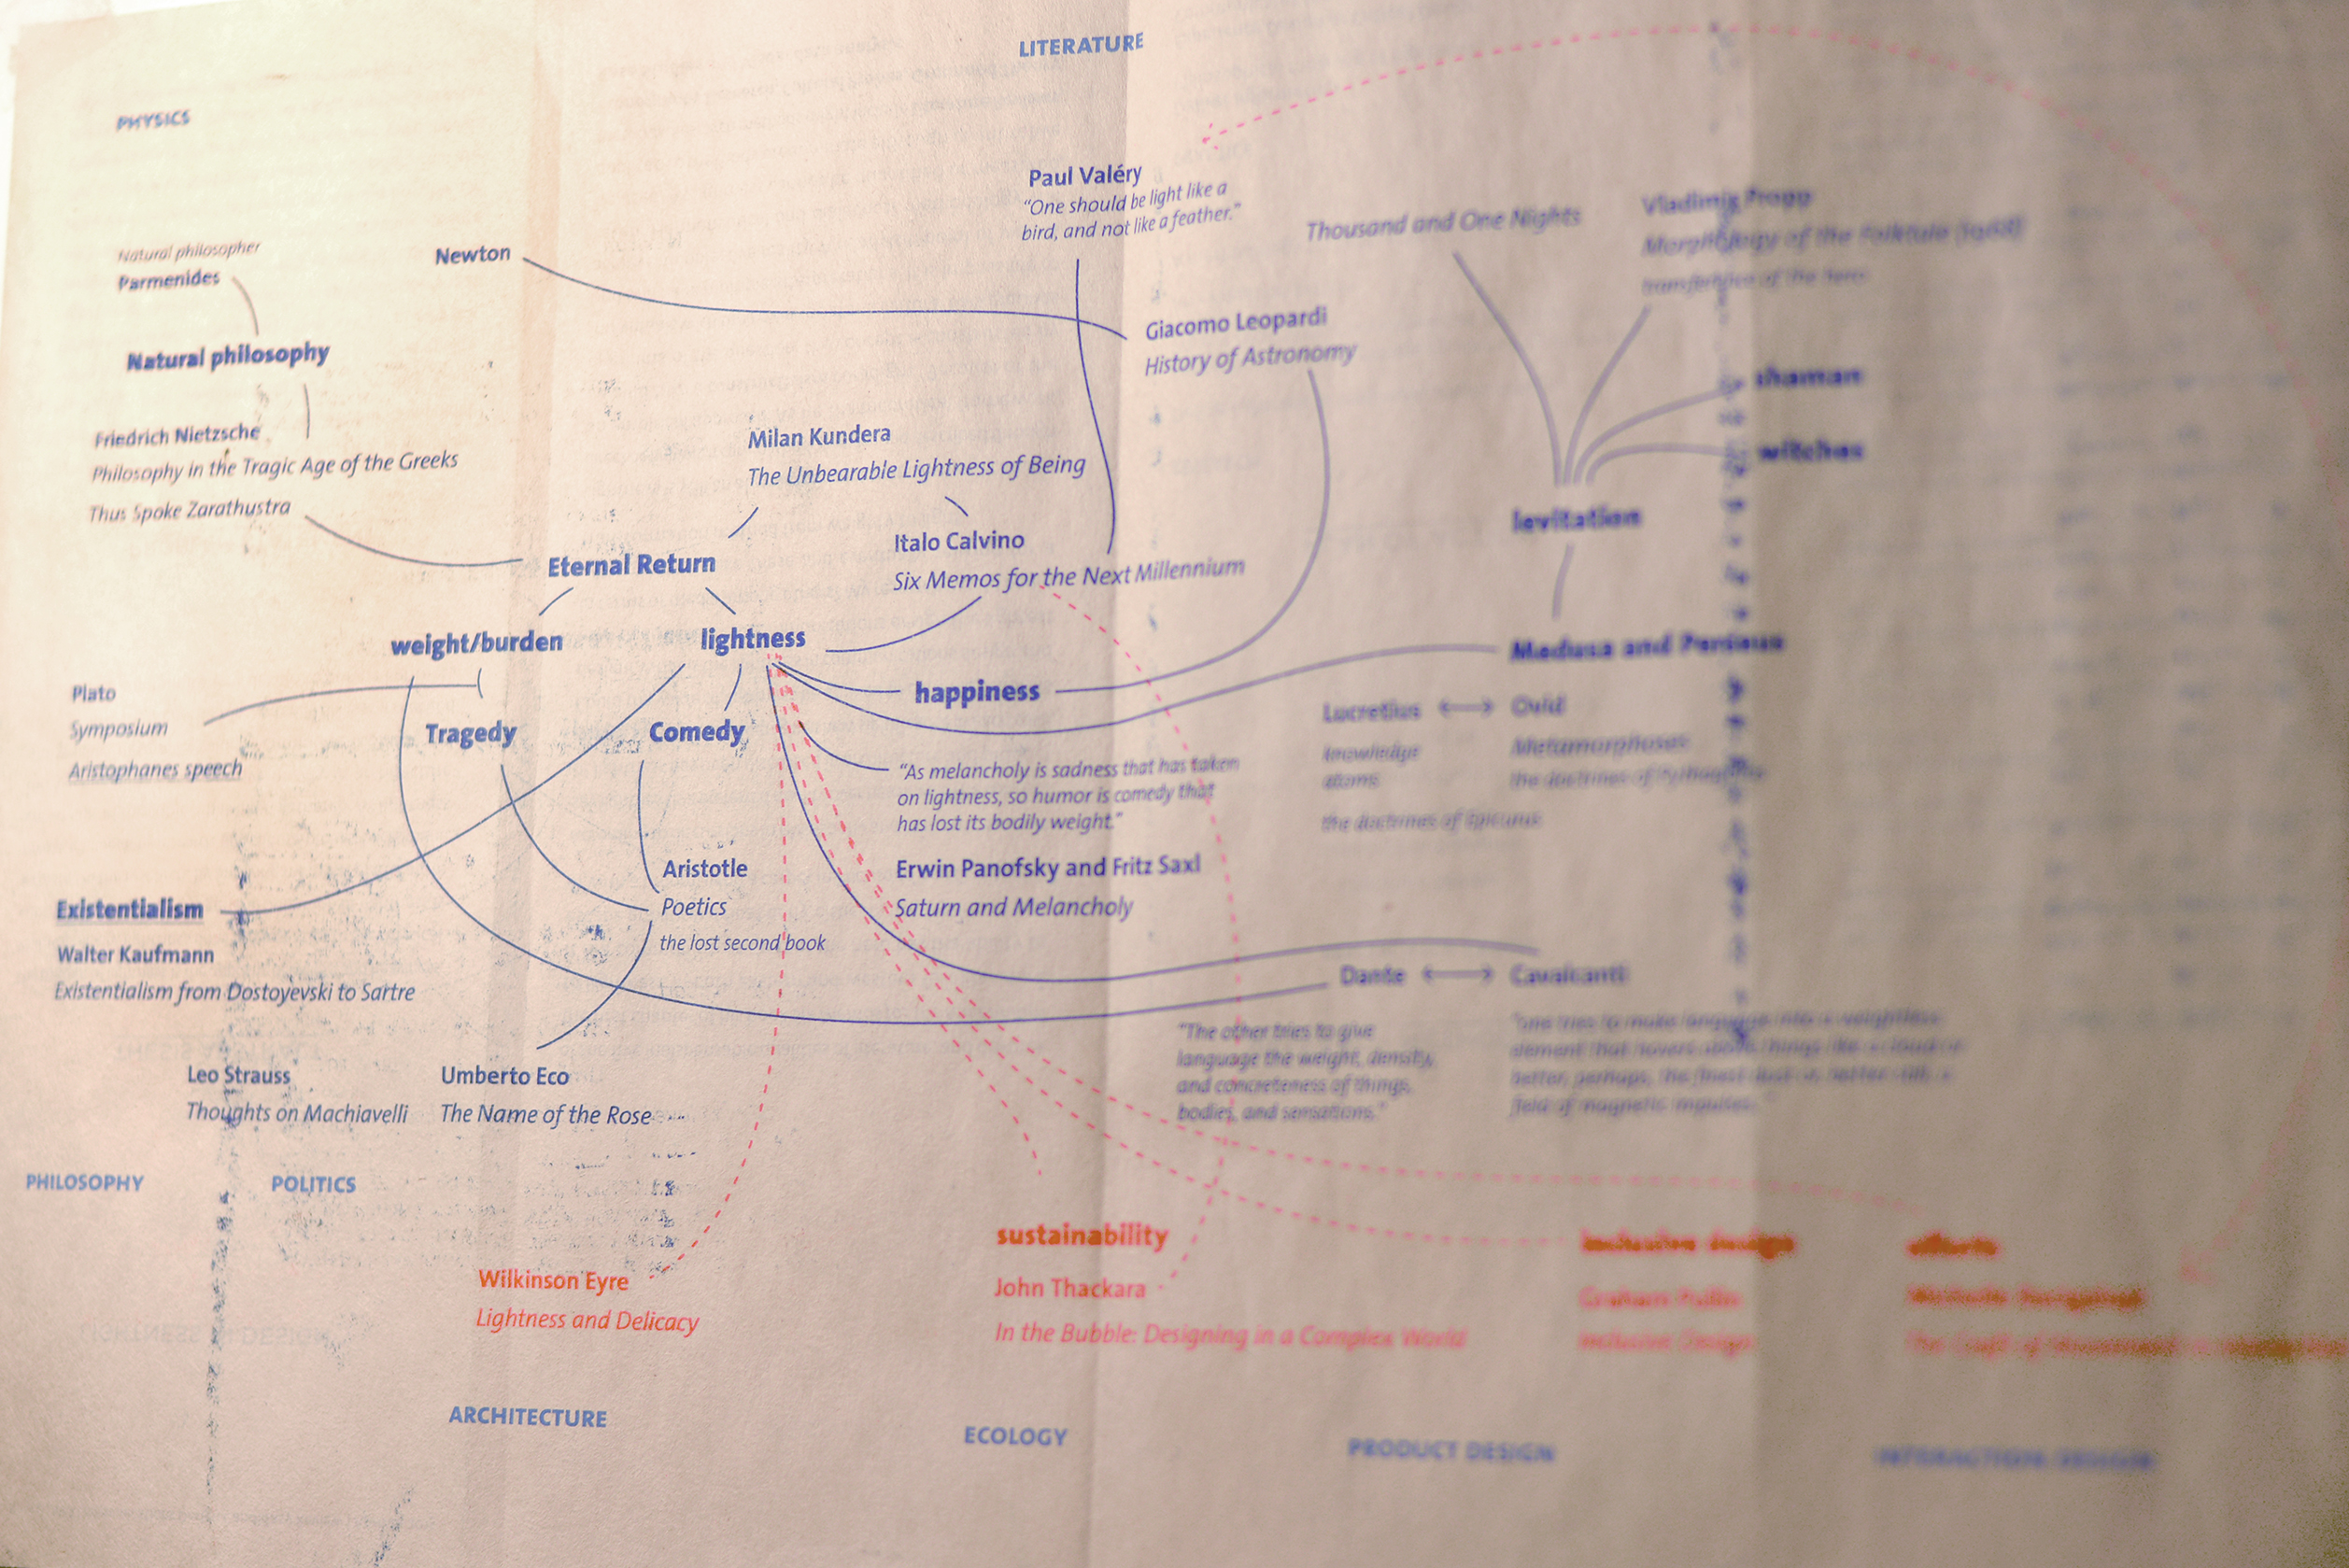 LITERATURE
PHYSICS
Paul Valéry
“One should be light like a
bird, and not like a feather.”
Thousand and One Nights
Vladimir Propp
Morphology of the Folktale
of the hero
Natural philosopher
Parmenides
Newton
Giacomo Leopardi
History of Astronomy
Natural philosophy
shaman
Friedrich Nietzsche
Philosophy in the Tragic Age of the Greeks
Thus Spoke Zarathustra
Milan Kundera
The Unbearable Lightness of Being
witches
levitation
Italo Calvino
Six Memos for the Next Millennium
Eternal Return
weight/burden
lightness
Medusa and Perseus
happiness
Plato
Symposium
Aristophanes speech
Tragedy
Comedy
Lucretius
Ovid
knowledge
atoms
the doctrines of Epicurus
Metamorphoses
the doctrines of Pythagoras
“As melancholy is sadness that has taken
on lightness, so humor is comedy that
has lost its bodily weight.”
Erwin Panofsky and Fritz Saxl
Saturn and Melancholy
Aristotle
Poetics
the lost second book
Existentialism
Walter Kaufmann
Existentialism from Dostoyevski to Sartre
Dante
Cavalcanti
“The other tries to give
language the weight, density,
and concreteness of things,
bodies, and sensations.”
“one tries to make language into a weightless
element that hovers above things like a cloud or
better, perhaps, the finest dust or better still, a
field of magnetic impulses.”
Leo Strauss
Thoughts on Machiavelli
Umberto Eco
The Name of the Rose
PHILOSOPHY
POLITICS
Wilkinson Eyre
Lightness and Delicacy
sustainability
John Thackara
In the Bubble: Designing in a Complex World
inclusive design
Graham Pullin
Inclusive Design
The Craft of Movement
ARCHITECTURE
ECOLOGY
PRODUCT DESIGN
INTERACTION DESIGN